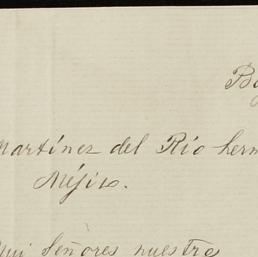 Martínez del Río herm
Méjico.
mui Señores nuestro